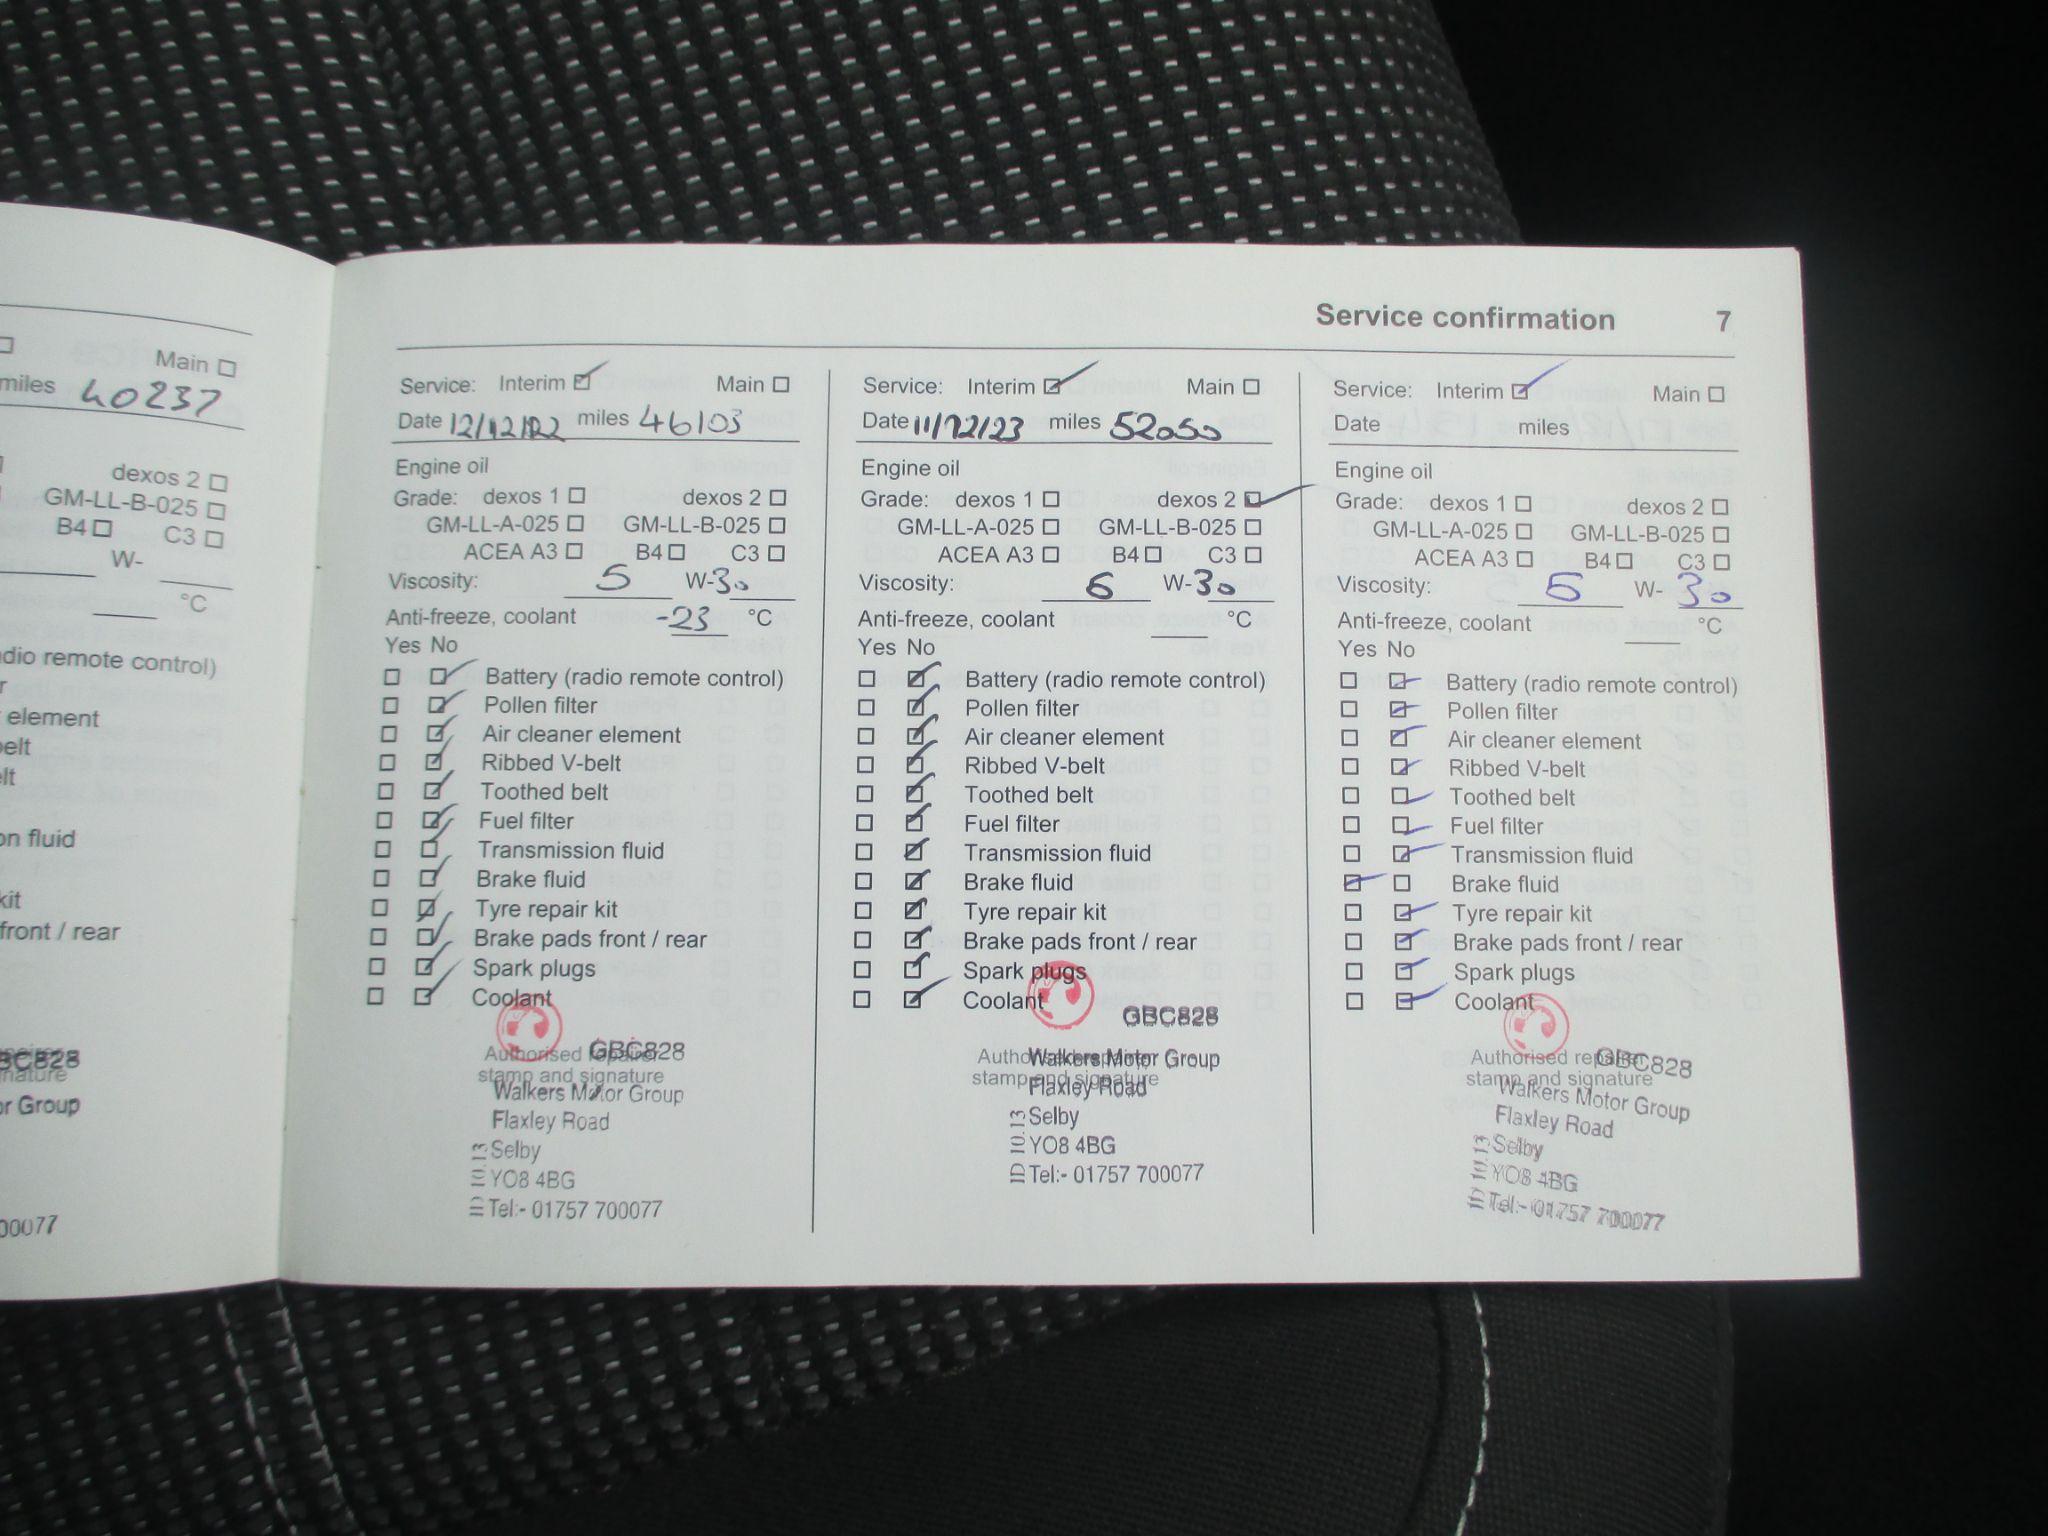 Main
miles 40237
dexos 2
GM-LL-B-025
B4 C3
W-
°C
dio remote control)
element
elt
on fluid
kit
front / rear
GBC828
nature
or Group
00077
Service confirmation 7
Service: Interim Main
Date 12/12/22 miles 46103
Engine oil
Grade: dexos 1 dexos 2
GM-LL-A-025 GM-LL-B-025
ACEA A3 B4 C3
Viscosity: 5 W-30
Anti-freeze, coolant -23 °C
Yes No
Battery (radio remote control)
Pollen filter
Air cleaner element
Ribbed V-belt
Toothed belt
Fuel filter
Transmission fluid
Brake fluid
Tyre repair kit
Brake pads front / rear
Spark plugs
Coolant
GBC828
Authorised repairer
stamp and signature
Walkers Motor Group
Flaxley Road
Selby
YO8 4BG
Tel:- 01757 700077
Service: Interim Main
Date 11/12/23 miles 52050
Engine oil
Grade: dexos 1 dexos 2
GM-LL-A-025 GM-LL-B-025
ACEA A3 B4 C3
Viscosity: 5 W-30
Anti-freeze, coolant °C
Yes No
Battery (radio remote control)
Pollen filter
Air cleaner element
Ribbed V-belt
Toothed belt
Fuel filter
Transmission fluid
Brake fluid
Tyre repair kit
Brake pads front / rear
Spark plugs
Coolant
GBC828
Authorised repairer
Walkers Motor Group
stamp and signature
Flaxley Road
Selby
YO8 4BG
Tel:- 01757 700077
ID 10.13
Service: Interim Main
Date miles
Engine oil
Grade: dexos 1 dexos 2
GM-LL-A-025 GM-LL-B-025
ACEA A3 B4 C3
Viscosity: 5 W- 30
Anti-freeze, coolant °C
Yes No
Battery (radio remote control)
Pollen filter
Air cleaner element
Ribbed V-belt
Toothed belt
Fuel filter
Transmission fluid
Brake fluid
Tyre repair kit
Brake pads front / rear
Spark plugs
Coolant
GBC828
Authorised repairer
stamp and signature
Walkers Motor Group
Flaxley Road
Selby
YO8 4BG
Tel:- 01757 700077